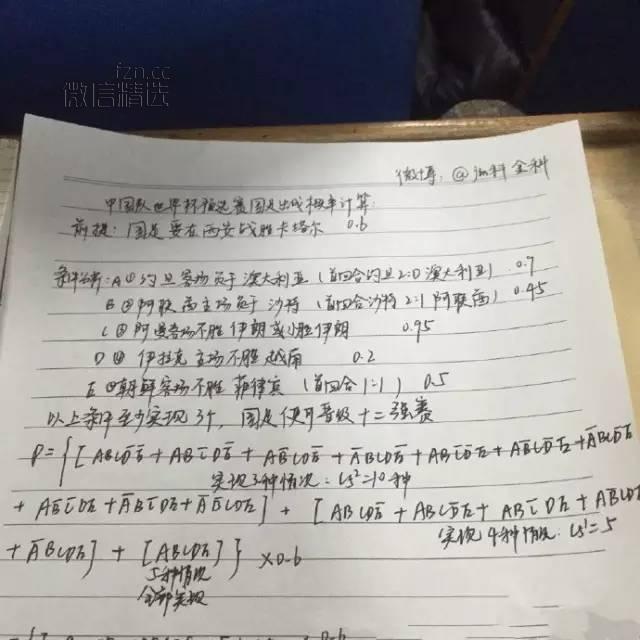 fzn.cc
微信精选
微博：@油料全科
中国队世界杯预选赛国足出线概率计算：
前提：国足要在西安战胜卡塔尔 0.6
条件分析：A ① 约旦客场负于澳大利亚（首回合约旦2:0澳大利亚） 0.7
B ② 阿联酋主场负于沙特（首回合沙特2:1阿联酋） 0.45
C ③ 阿曼客场不胜伊朗或小胜伊朗 0.95
D ④ 伊拉克主场不胜越南 0.2
E ⑤ 朝鲜客场不胜菲律宾（首回合1:1） 0.5
以上条件至少实现3个，国足便可晋级十二强赛
P={[ABCD̅E̅+ABC̅DE̅+AB̅CDE̅+A̅BCDE̅+ABC̅D̅E+AB̅CD̅E+A̅BCD̅E
实现3种情况：C₅³=10种
+AB̅C̅DE+A̅BC̅DE+A̅B̅CDE]+[ABCDE̅+ABCD̅E+ABC̅DE+AB̅CDE
实现4种情况：C₅⁴=5
+A̅BCDE]+[ABCDE]}×0.6
5种情况
全部实现